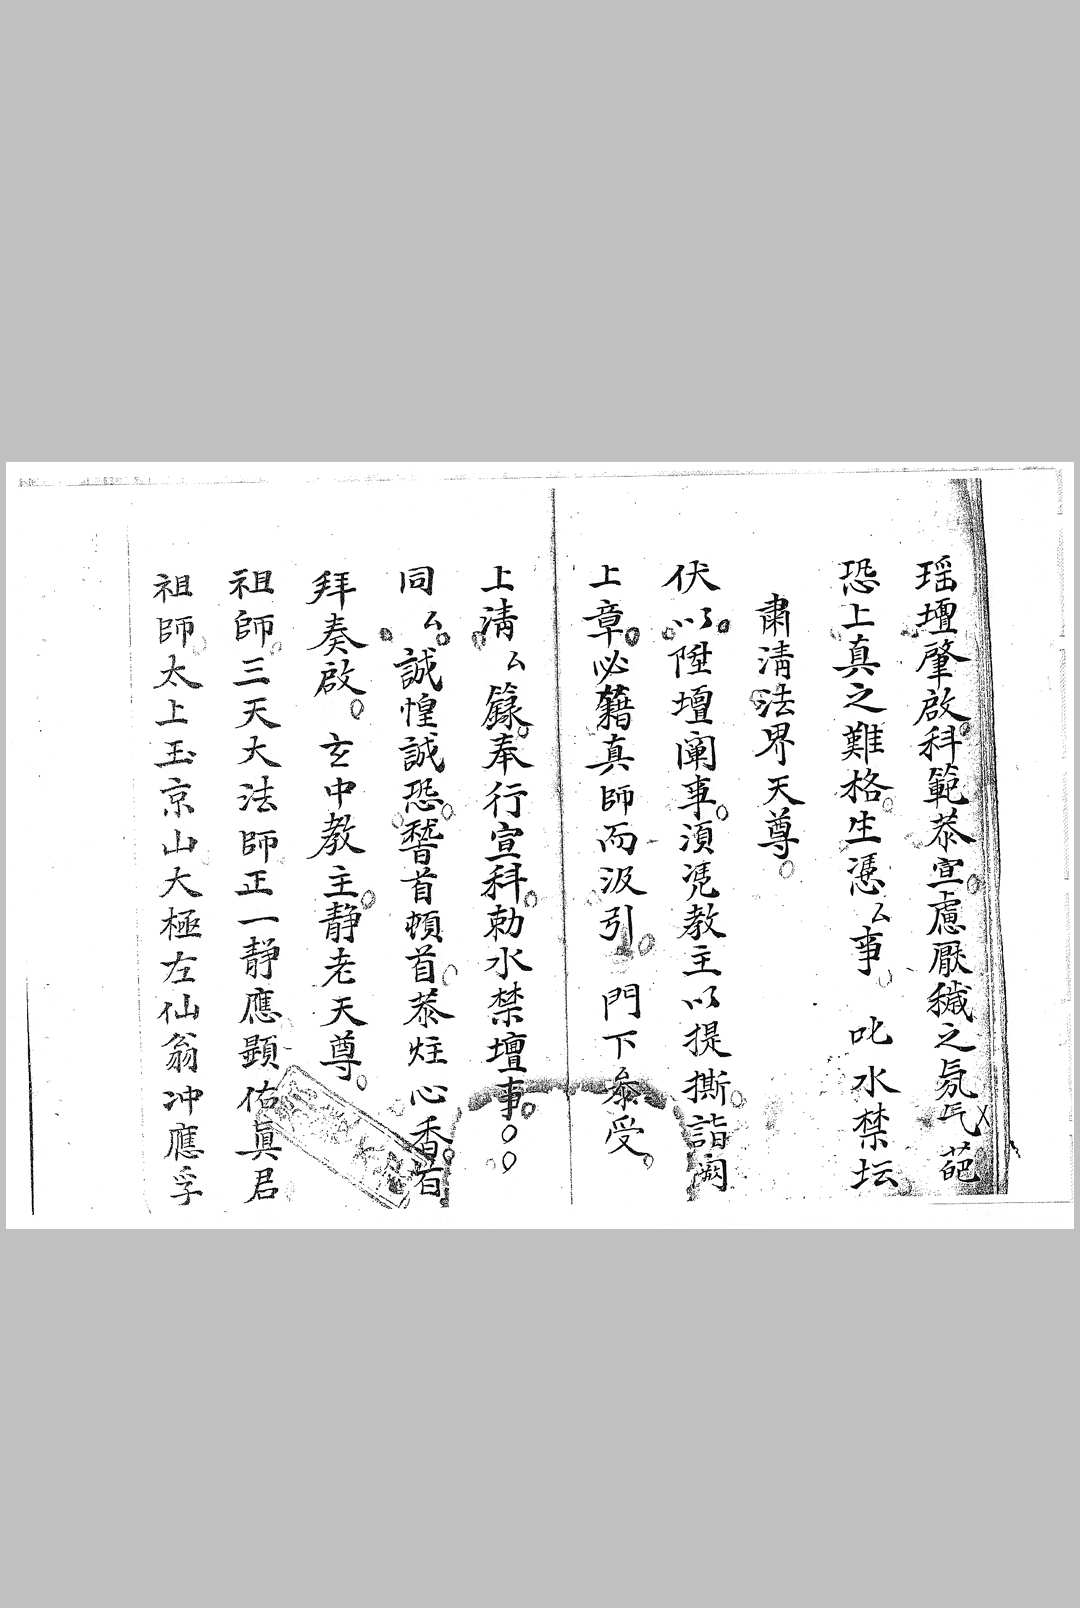 瑶壇肇啟科範恭宣慮厭穢之氛氣葩
恐上真之難格生憑厶事 叱水禁坛
肅清法界天尊
伏以陞壇闡事須凴教主以提撕詣闕
上章必籍真師而汲引 門下叅受
上清厶籙奉行宣科勅水禁壇事
同厶誠惶誠恐稽首頓首恭炷心香首
拜奏啟 玄中教主静老天尊
祖師三天大法師正一静應顯佑真君
祖師太上玉京山大極左仙翁冲應孚